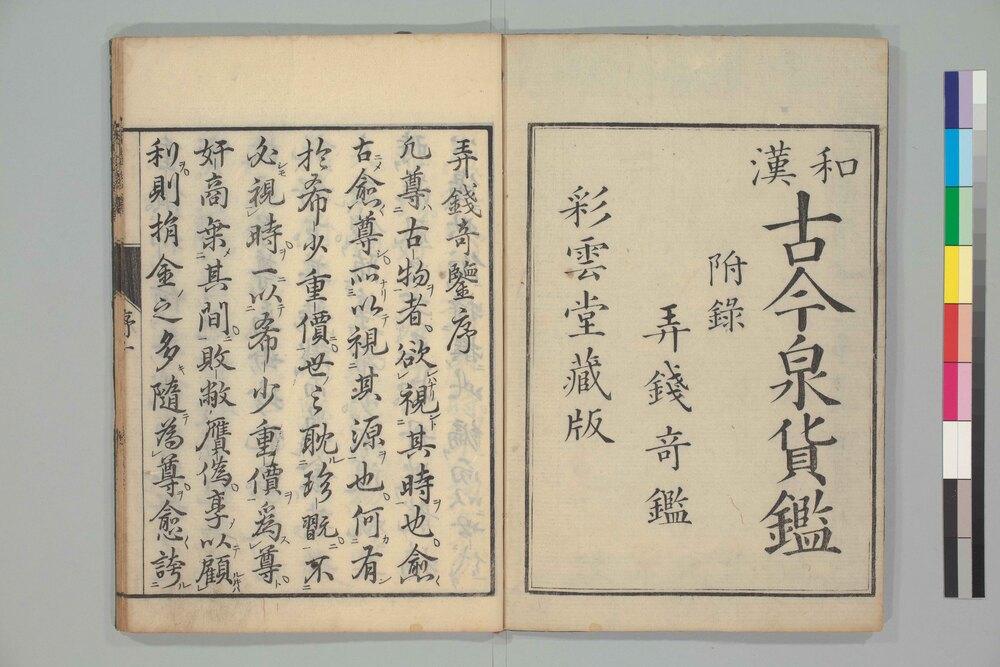 和漢
古今泉貨鑑
附錄
弄錢奇鑑
彩雲堂藏版
弄錢奇鑒序
凢尊古物者欲視其時也愈
古愈尊所以視其源也何有
於希少重價世々耽珍翫不
必視時一以希少重價爲尊
奸商乗其間敗敝贋偽享以顧
利則捐金之多隨為尊愈誇
序一